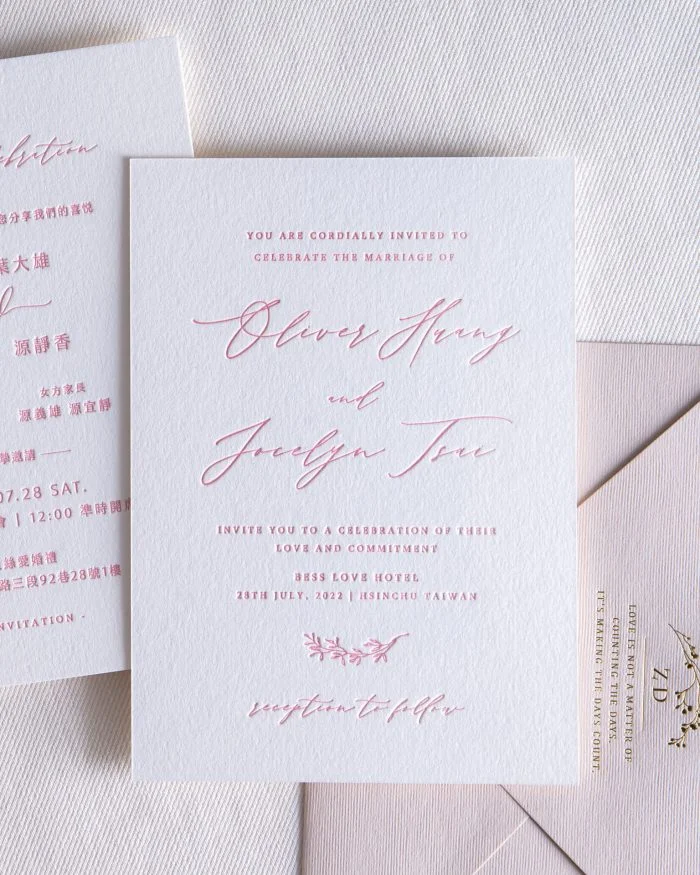 YOU ARE CORDIALLY INVITED TO
CELEBRATE THE MARRIAGE OF
Oliver Huang
and
Jocelyn Tsai
INVITE YOU TO A CELEBRATION OF THEIR
LOVE AND COMMITMENT
BESS LOVE HOTEL
28TH JULY, 2022 | HSINCHU TAIWAN
reception to follow
分享我們的喜悅
大雄
源靜香
女方家長
源義雄 源宜靜
邀請
07.28 SAT.
12:00 準時開
緣愛婚禮
路三段92巷28號1樓
LOVE IS NOT A MATTER OF
COUNTING THE DAYS.
IT'S MAKING THE DAYS COUNT.
ZD